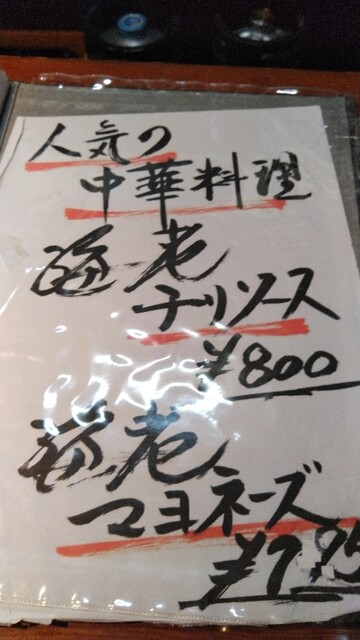 人気の
中華料理
海老
チリソース
¥800
海老
マヨネーズ